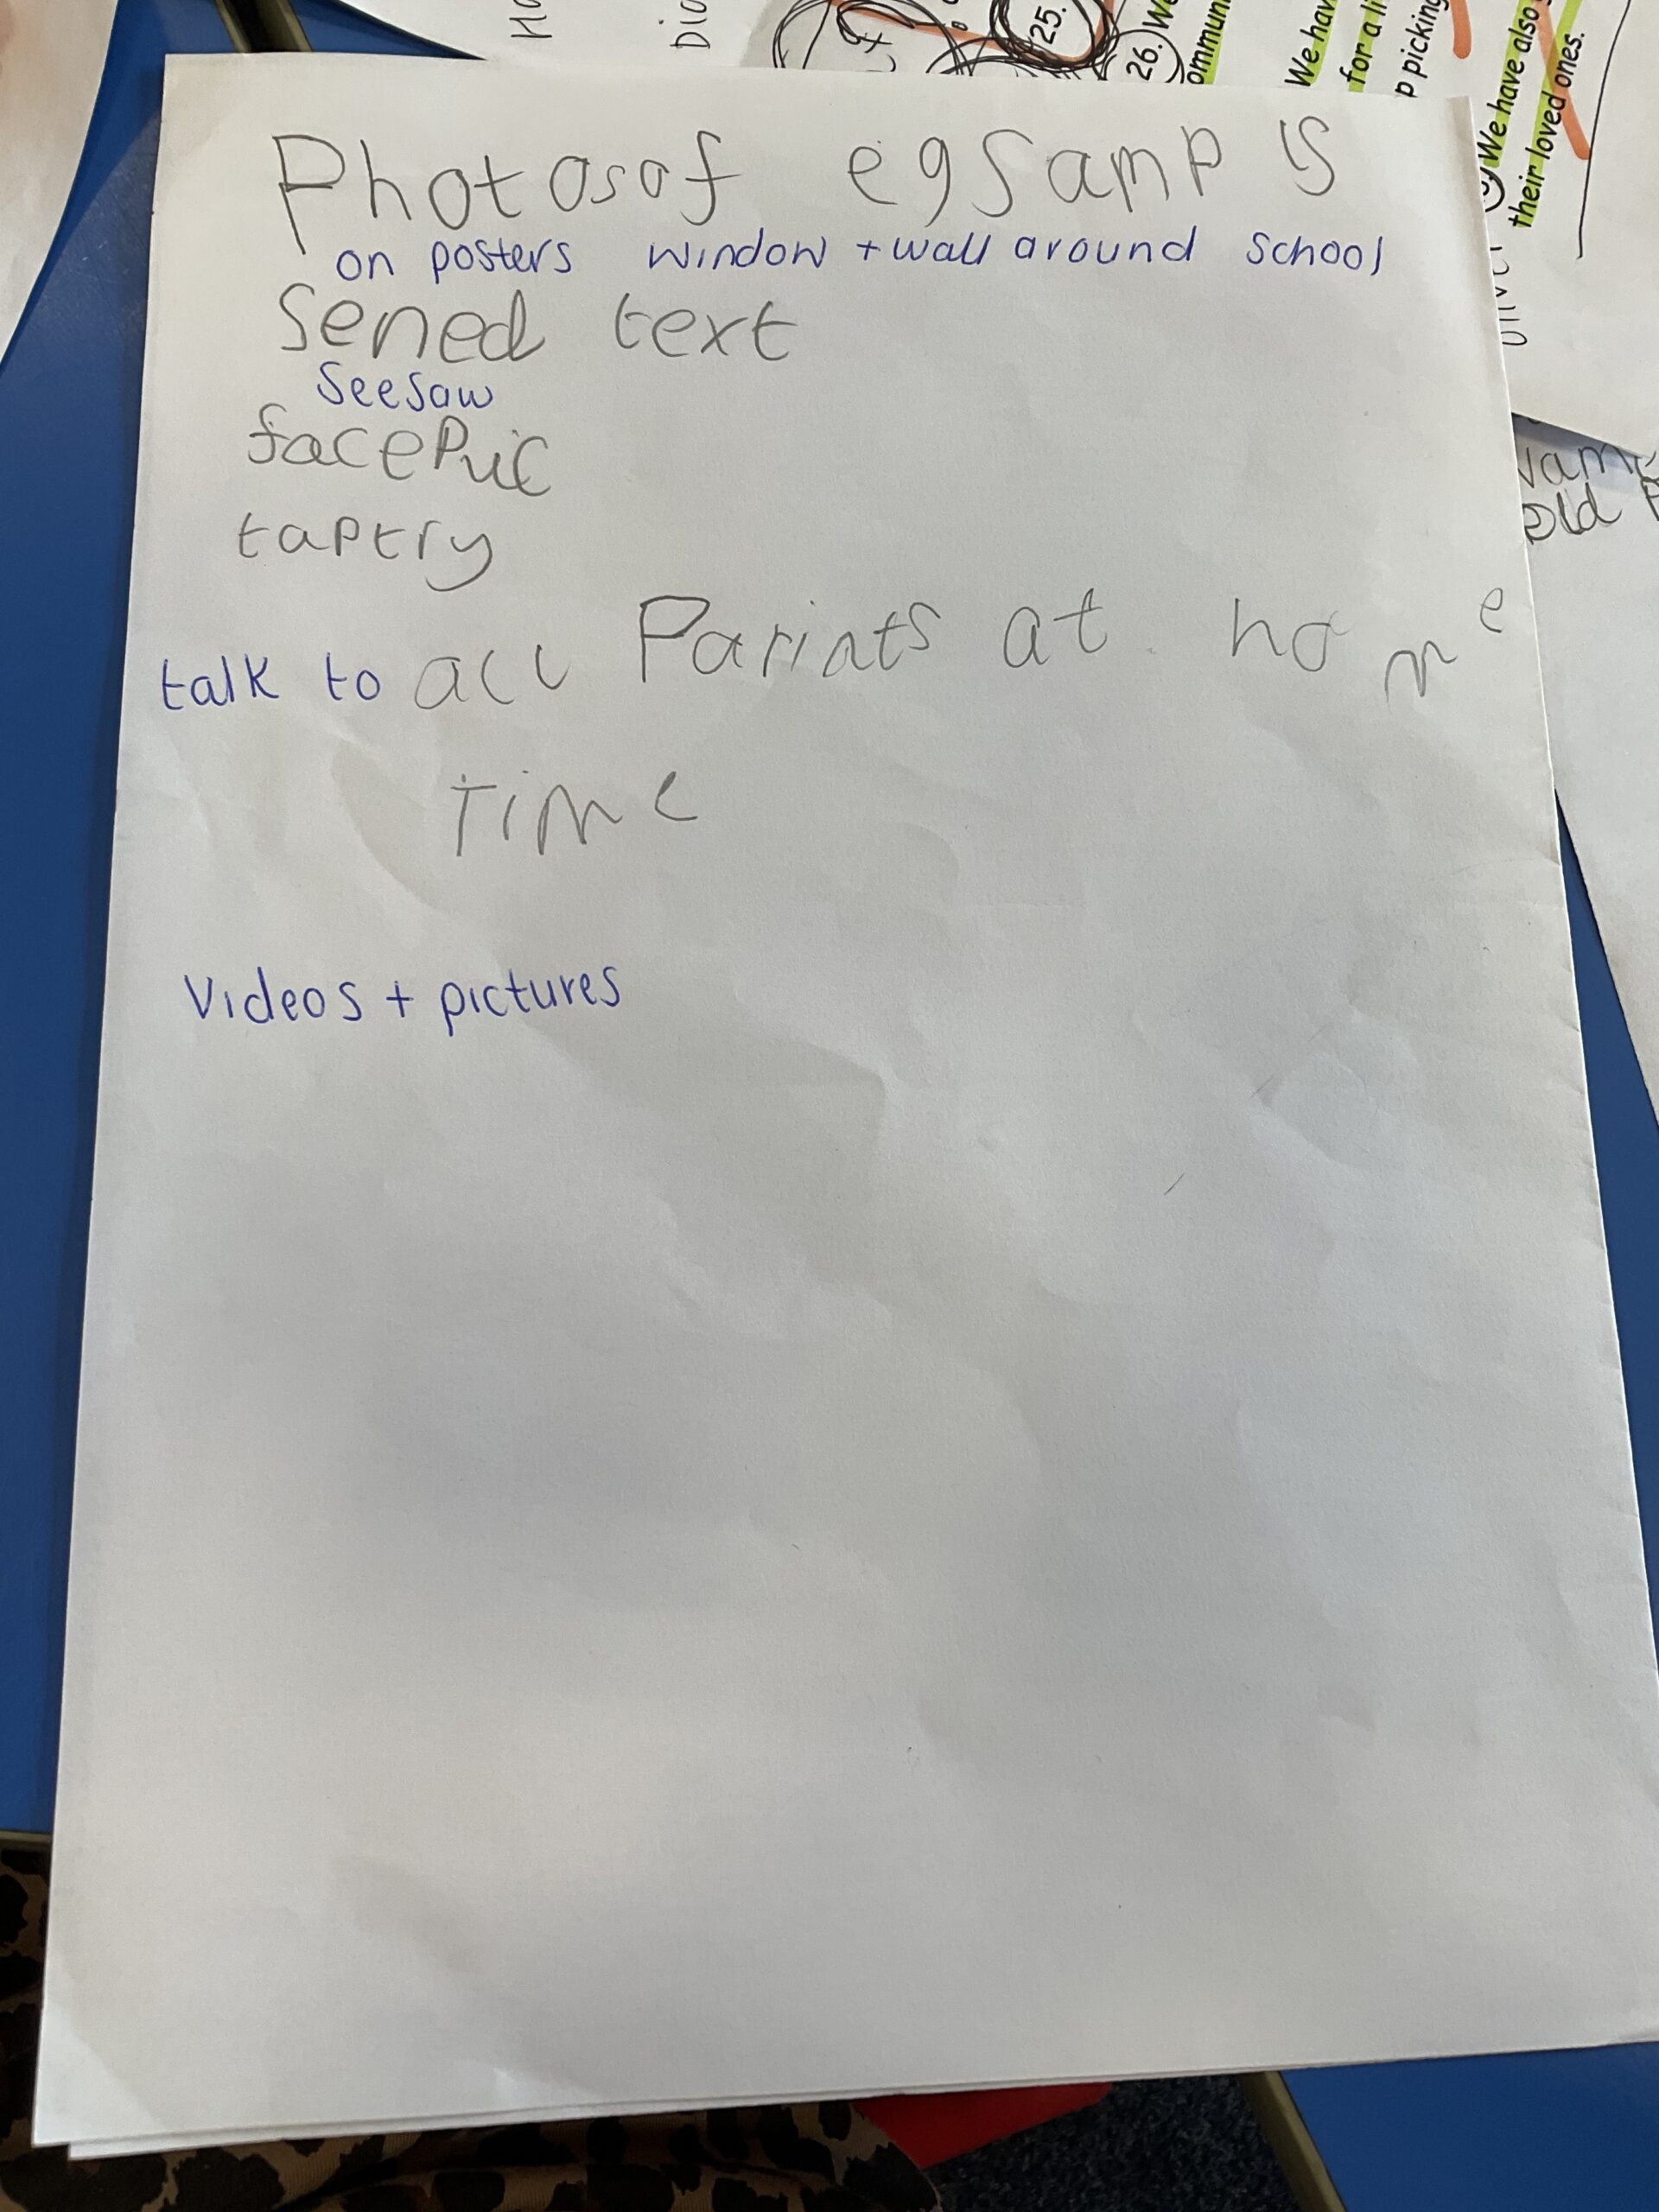 Photosof egsampls
on posters window + wall around school
Sened text
Seesaw
facePuiC
taptry
talk to all Parints at home
Time
Videos + pictures
25.
26. We
ommun
We hav
for a li
p picking
We have also
their loved ones.